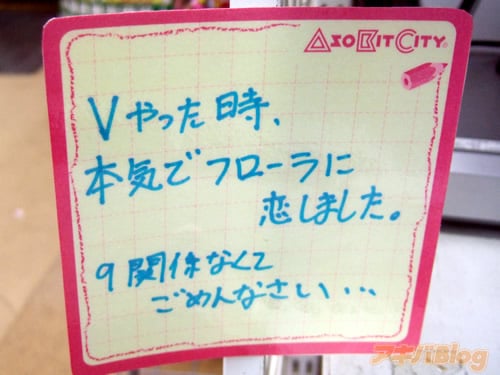 ASOBITCITY
Vやった時、
本気でフローラに
恋しました。
9関係なくて
ごめんなさい...
アキバBlog